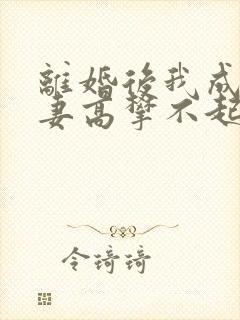 離婚後我成
妻高攀不起
令琦琦